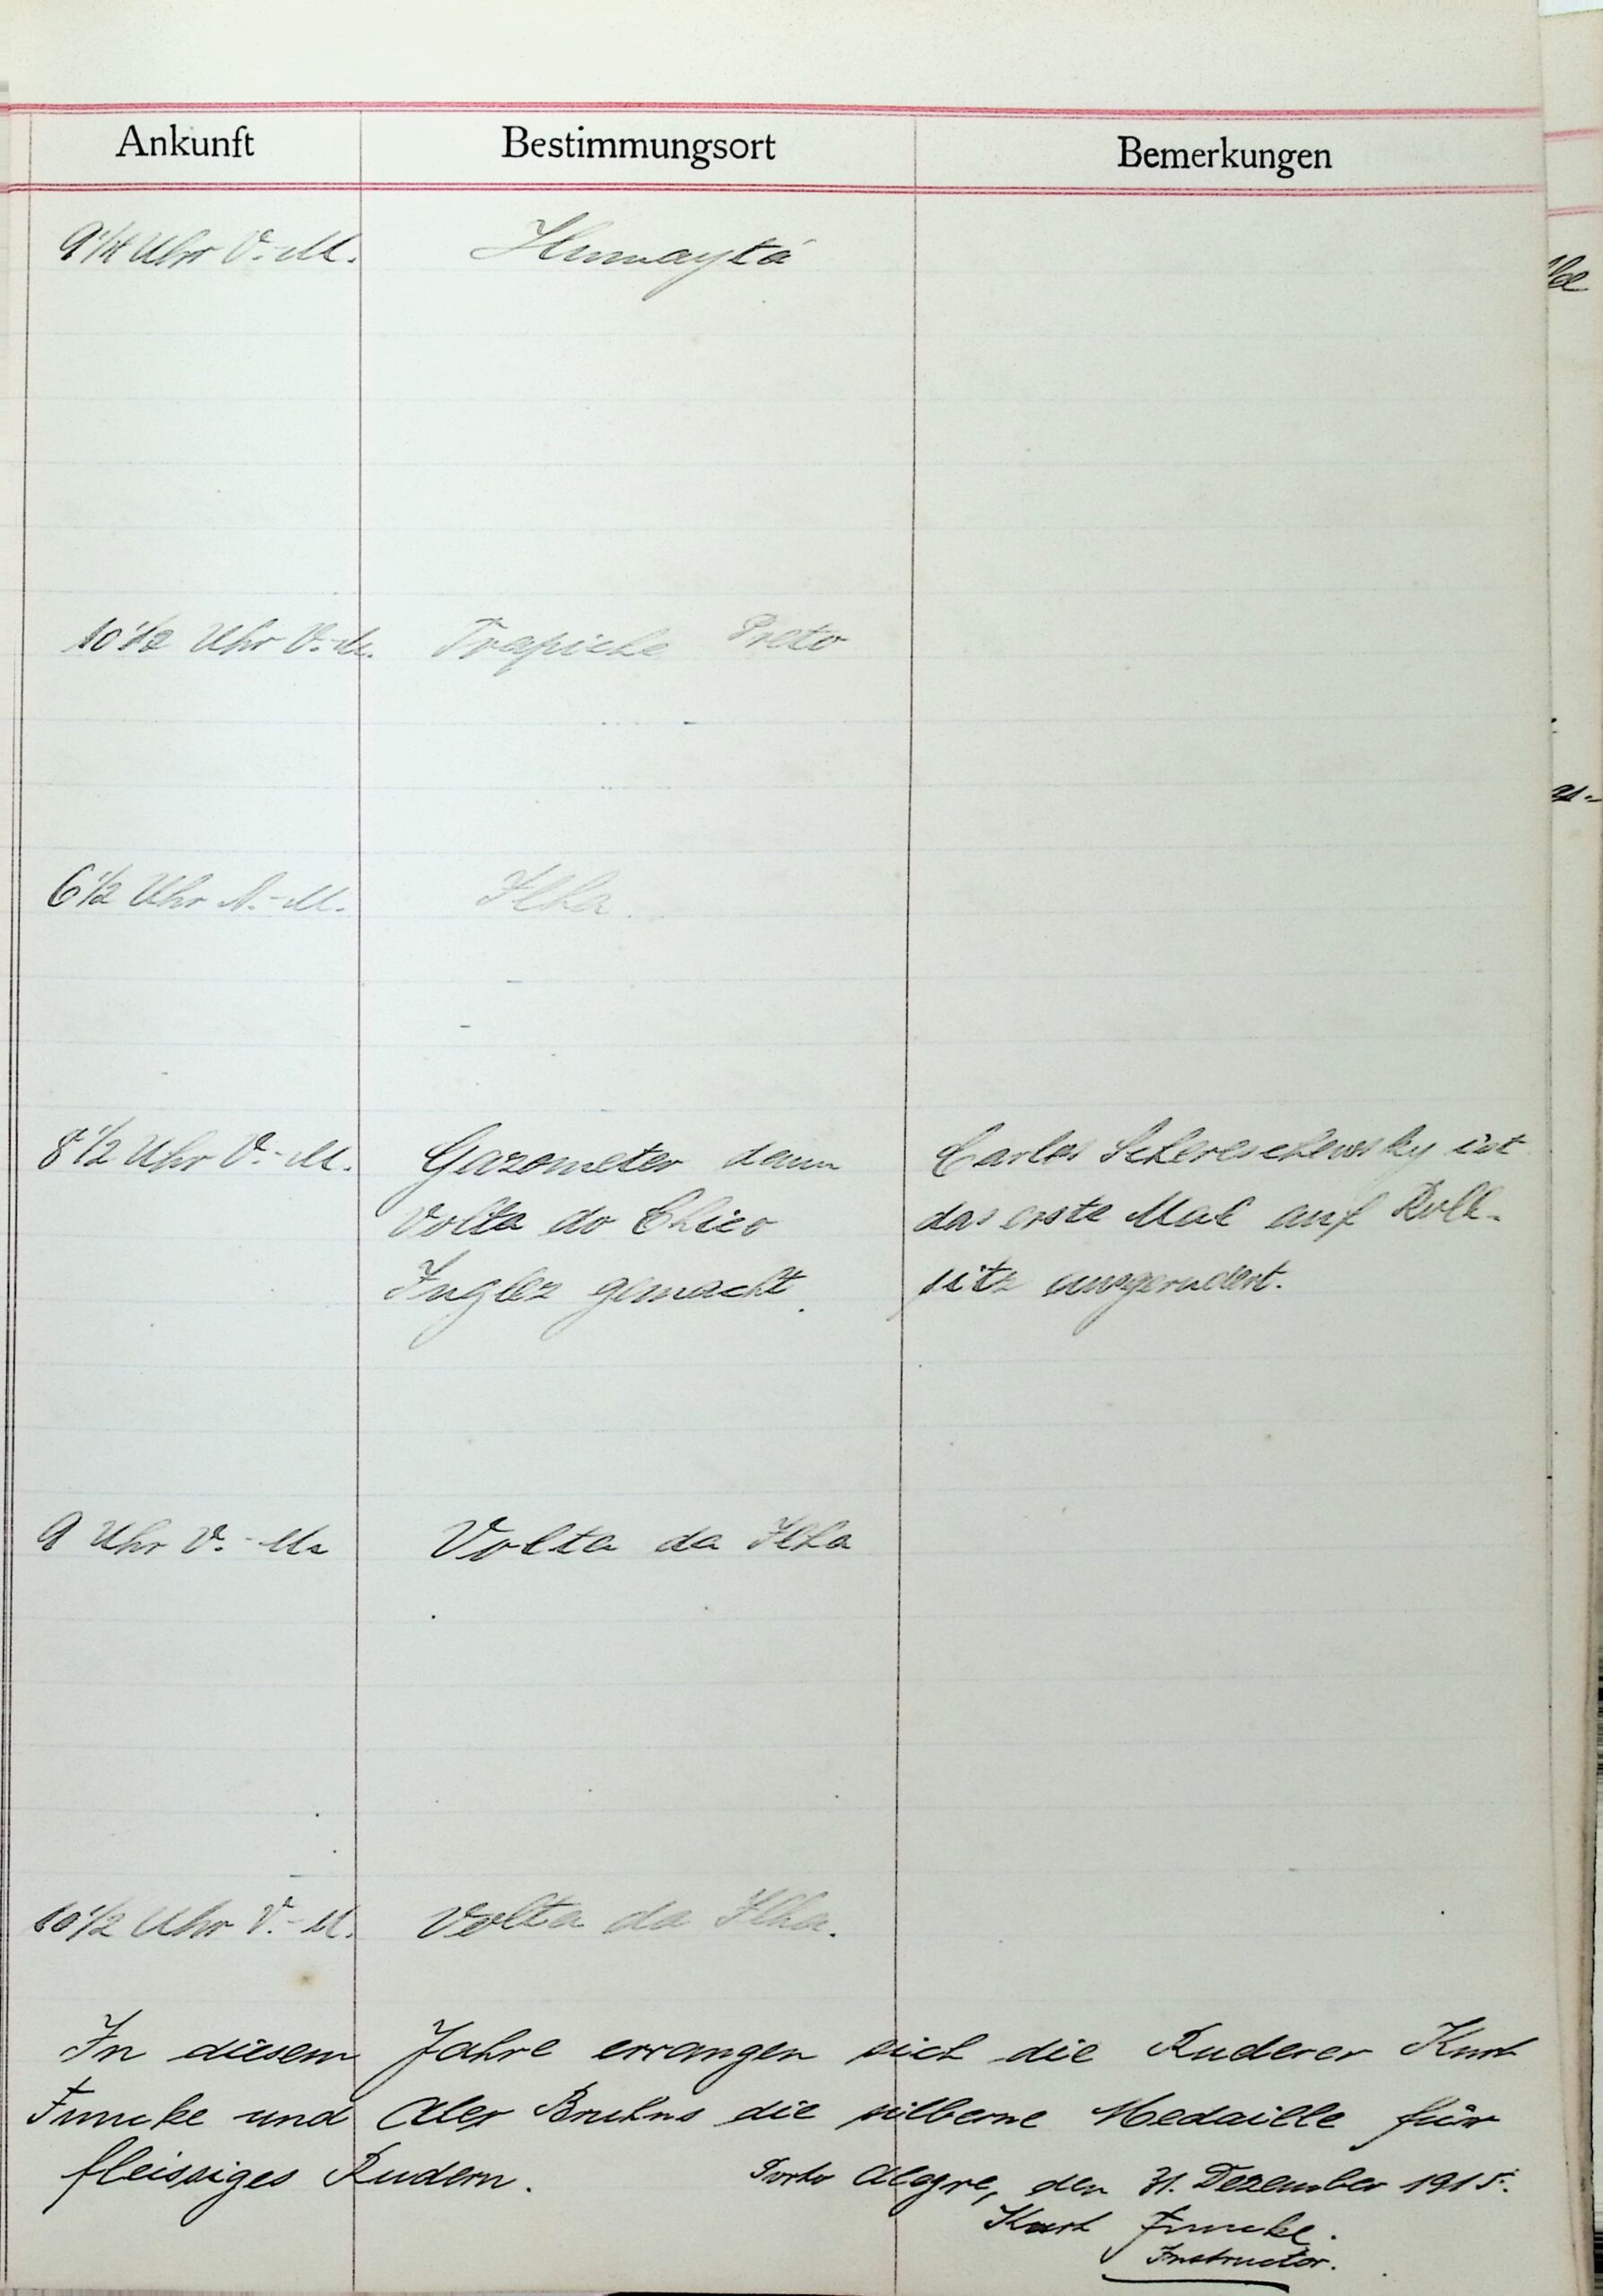 Ankunft Bestimmungsort Bemerkungen
9 1/4 Uhr V.-M. Humaytá
10 1/2 Uhr V.-M. Trapiche Preto
6 1/2 Uhr N.-M. Ilha.
8 1/2 Uhr V.-M. Gazometer dann Carlos Schereschewsky ist
Volta do Chico das erste Mal auf Roll-
Inglez gemacht. sitz ausgerudert.
9 Uhr V.-M. Volta da Ilha
10 1/2 Uhr V.-M. Volta da Ilha.
In diesem Jahre errangen sich die Ruderer Kurt
Funcke und Alex Bruhns die silberne Medaille für
fleissiges Rudern. Porto Alegre, den 31. Dezember 1915.
Kurt Funcke.
Instructor.